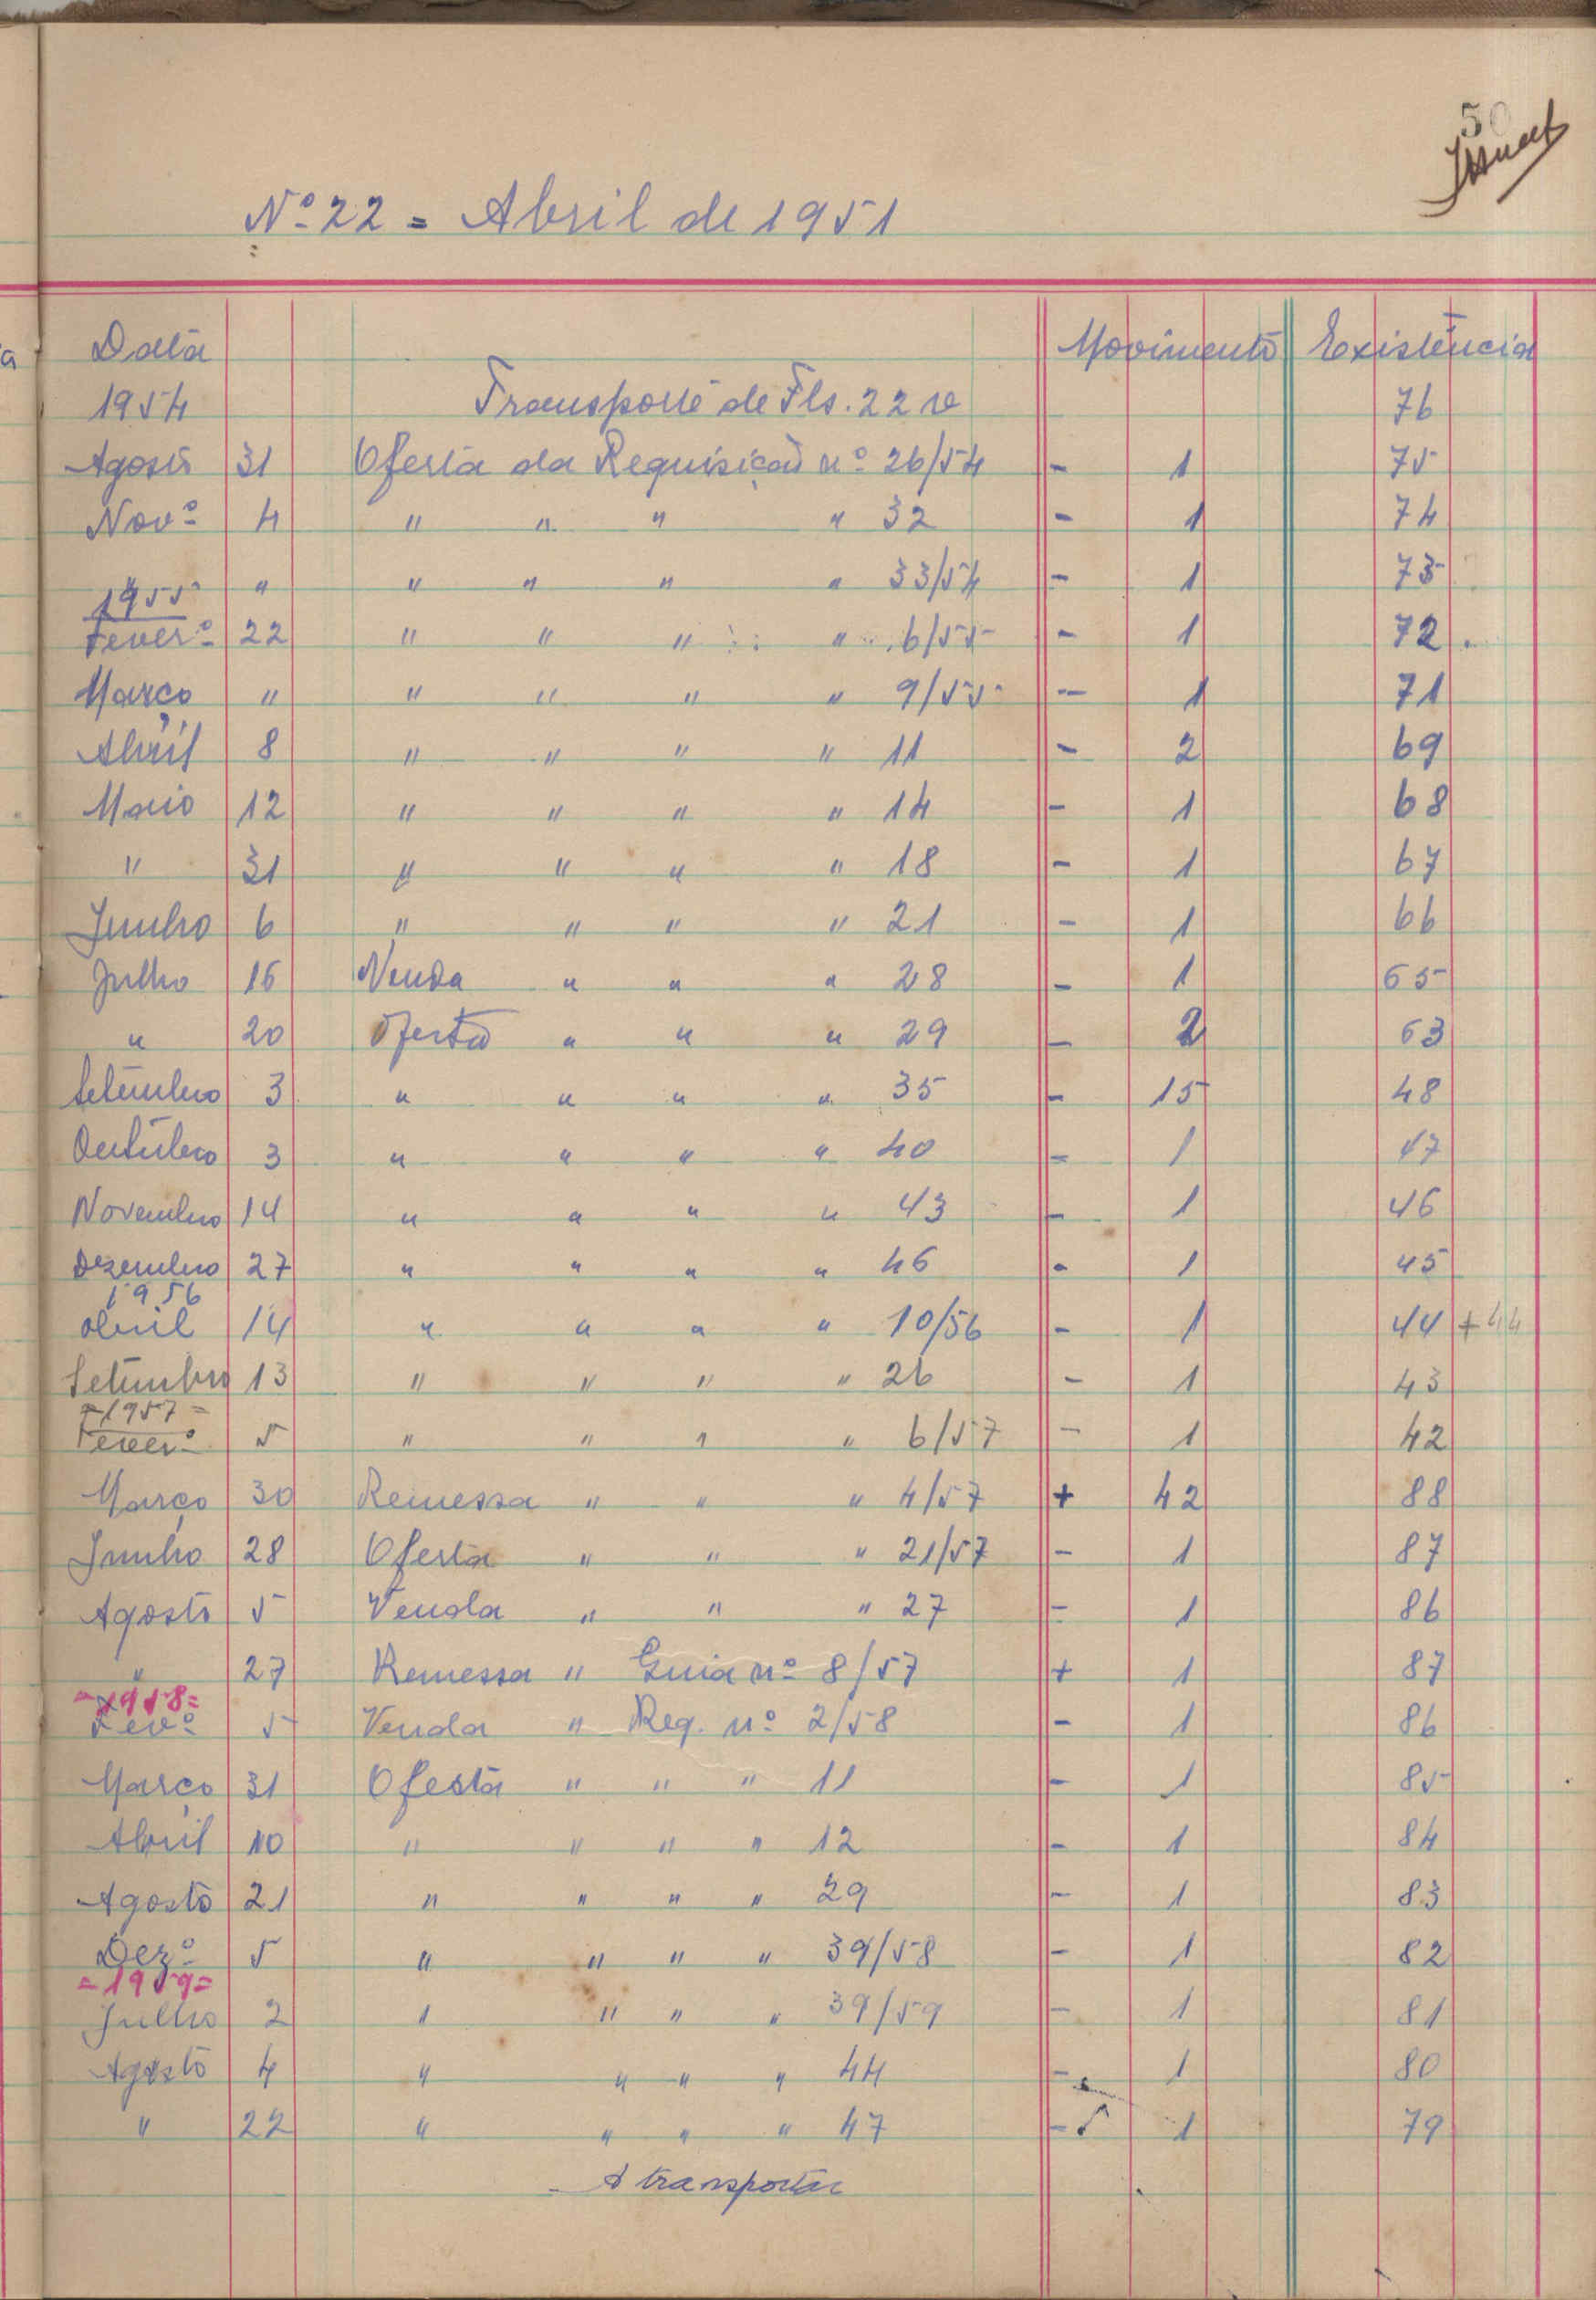 50
Nº 22 = Abril de 1951
Data Movimento Existência
1954 Transporte de Fls. 22 v 76
Agosto 31 Oferta da Requisição nº 26/54 - 1 75
Novº 4 " " " " 32 - 1 74
" " " " " " 33/54 - 1 73
1955
Feverº 22 " " " " 6/55 - 1 72
Março " " " " " 9/55 - 1 71
Abril 8 " " " " 11 - 2 69
Maio 12 " " " " 14 - 1 68
" 31 " " " " 18 - 1 67
Junho 6 " " " " 21 - 1 66
Julho 16 Venda " " " 28 - 1 65
" 20 Oferta " " " 29 - 2 63
Setembro 3 " " " " 35 - 15 48
Outubro 3 " " " " 40 - 1 47
Novembro 14 " " " " 43 - 1 46
Dezembro 27 " " " " 46 - 1 45
1956
Abril 14 " " " " 10/56 - 1 44 + 44
Setembro 13 " " " " 26 - 1 43
=1957=
Feverº 5 " " " " 6/57 - 1 42
Março 30 Remessa " " " 4/57 + 42 88
Junho 28 Oferta " " " 21/57 - 1 87
Agosto 5 Venda " " " 27 - 1 86
" 27 Remessa " Guia nº 8/57 + 1 87
=1958=
Fevº 5 Venda " Req. nº 2/58 - 1 86
Março 31 Oferta " " " 11 - 1 85
Abril 10 " " " " 12 - 1 84
Agosto 21 " " " " 29 - 1 83
Dezº 5 " " " " 39/58 - 1 82
=1959=
Julho 2 " " " " 39/59 - 1 81
Agosto 4 " " " " 44 - 1 80
" 22 " " " " 47 - 1 79
A transportar